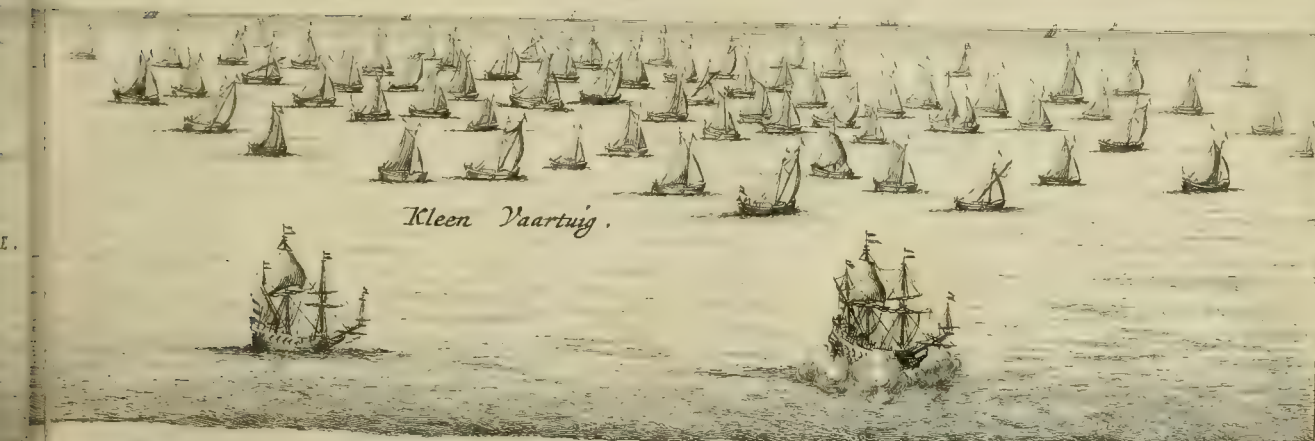 Kleen Vaartuig.